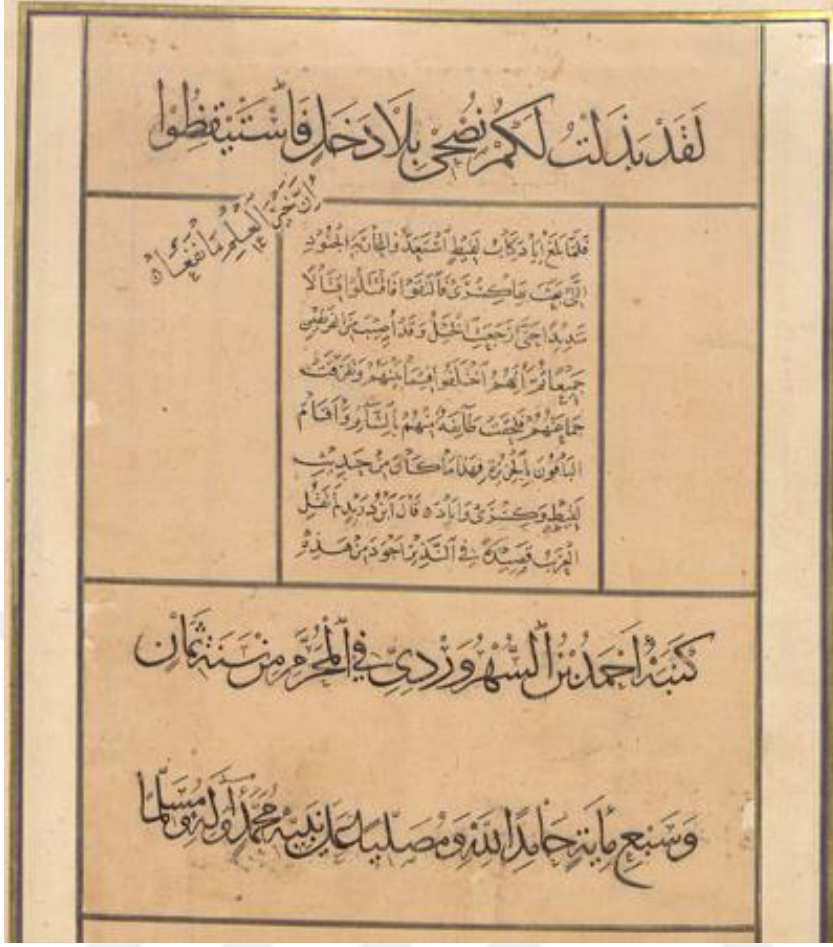 لَقَدْ بَذَلْتُ لَكُمْ نُصْحِي بِلَا دَخَلٍ فَاسْتَيْقِظُوا
إِنَّ خَيْرَ الْعِلْمِ مَا نَفَعَا
فلما بلغ إياد كتاب لقيط استعدوا لمحاربة الجنود
التي بعث بها كسرى فالتقوا فاقتتلوا قتالا
شديدا حتى رجعت الخيل وقد أصيب من الفريقين
جميعا ثم إنهم اختلفوا فيما بينهم وتفرقت
جماعتهم فلحقت طائفة منهم بالشام وأقام
الباقون بالجزيرة فهذا ما كان من حديث
لقيط وكسرى وإياد ه قال ابن دريد لم تقل
العرب قصيدة في النذير أجود من هذه
كَتَبَهُ أَحْمَدُ بْنُ السُّهْرَوَرْدِيِّ فِي الْمُحَرَّمِ مِنْ سَنَةِ ثَمَانٍ
وَسَبْعِ مِايَةٍ حَامِدًا لِلّهِ وَمُصَلِّيًا عَلَى نَبِيِّهِ مُحَمَّدٍ وَآلِهِ وَمُسَلِّمًا